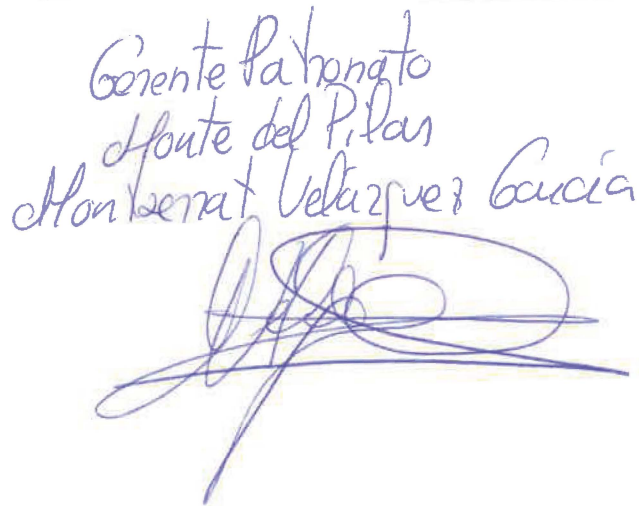 Gerente Patronato
Monte del Pilar
Montserrat Velázquez García